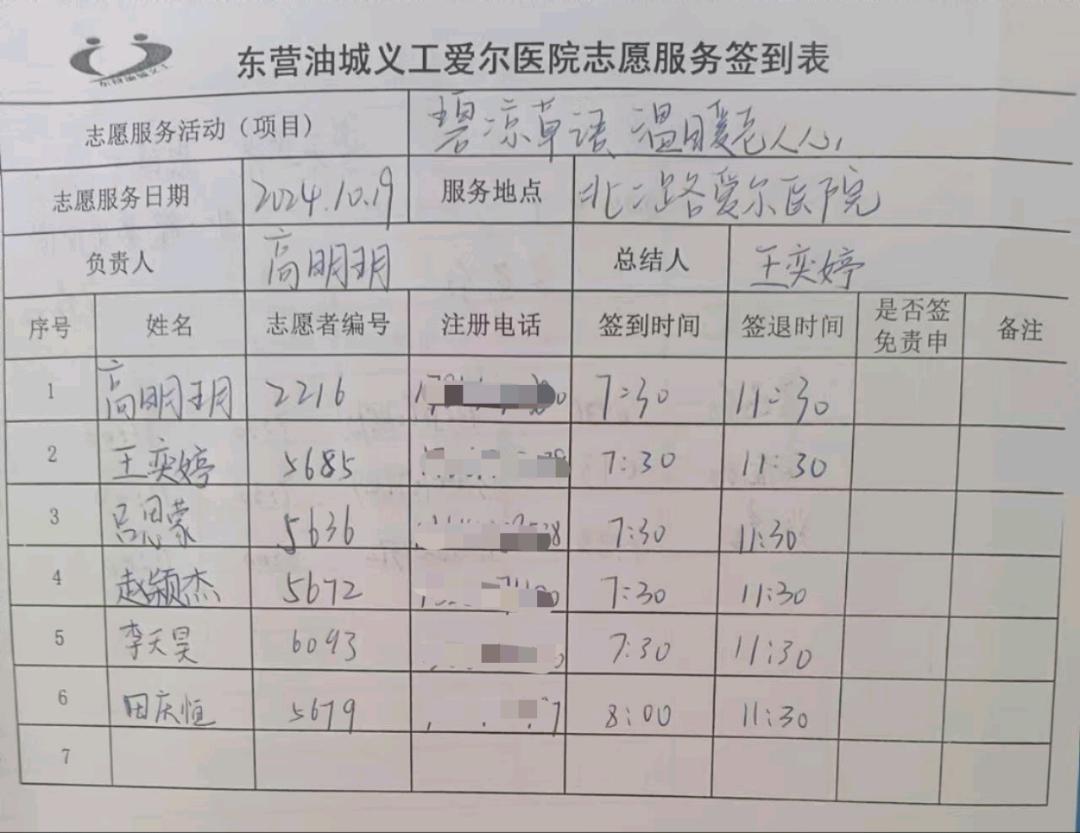 东营油城义工
东营油城义工爱尔医院志愿服务签到表
志愿服务活动（项目） 碧凉草语 温暖老人心
志愿服务日期 2024.10.19 服务地点 北二路爱尔医院
负责人 高明玥 总结人 王奕婷
序号 姓名 志愿者编号 注册电话 签到时间 签退时间 是否签免责申 备注
1 高明玥 2216 7:30 11:30
2 王奕婷 5685 7:30 11:30
3 吕思蒙 5636 7:30 11:30
4 赵颖杰 5672 7:30 11:30
5 李天昊 6093 7:30 11:30
6 田庆恒 5679 8:00 11:30
7